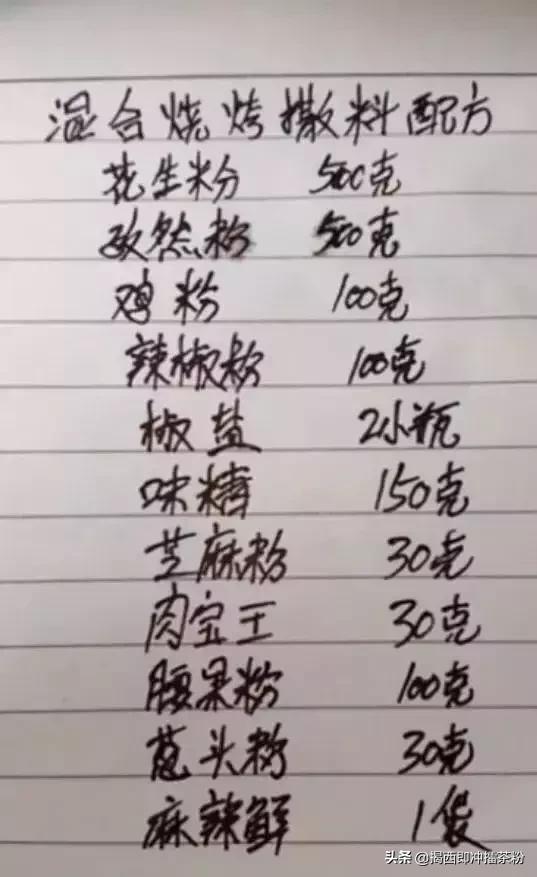 混合烧烤撒料配方
花生粉 500克
孜然粉 500克
鸡粉 100克
辣椒粉 100克
椒盐 2小瓶
味精 150克
芝麻粉 30克
肉宝王 30克
腰果粉 100克
葱头粉 30克
麻辣鲜 1袋
头条 @揭西即冲擂茶粉